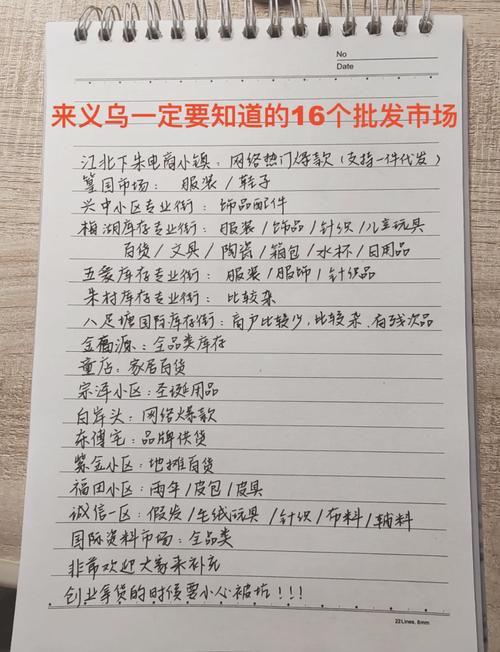 No
Date
来义乌一定要知道的16个批发市场
江北下朱电商小镇：网络热门爆款（支持一件代发）
篁园市场：服装/鞋子
兴中小区专业街：饰品配件
梅湖库存专业街：服装/饰品/针织/儿童玩具
百货/文具/陶瓷/箱包/水杯/日用品
五爱库存专业街：服装/服饰/针织品
朱村库存专业街：比较杂
八足塘国际库存街：商户比较少，比较杂，有残次品
金福源：全品类库存
童店：家居百货
宗泽小区：圣诞用品
白岸头：网络爆款
东傅宅：品牌供货
紫金小区：地摊百货
福田小区：雨伞/皮包/皮具
诚信一区：假发/毛绒玩具/针织/布料/辅料
国际资料市场：全品类
非常欢迎大家来补充
创业拿货的时候要小心被坑！！！
22Lines, 8mm